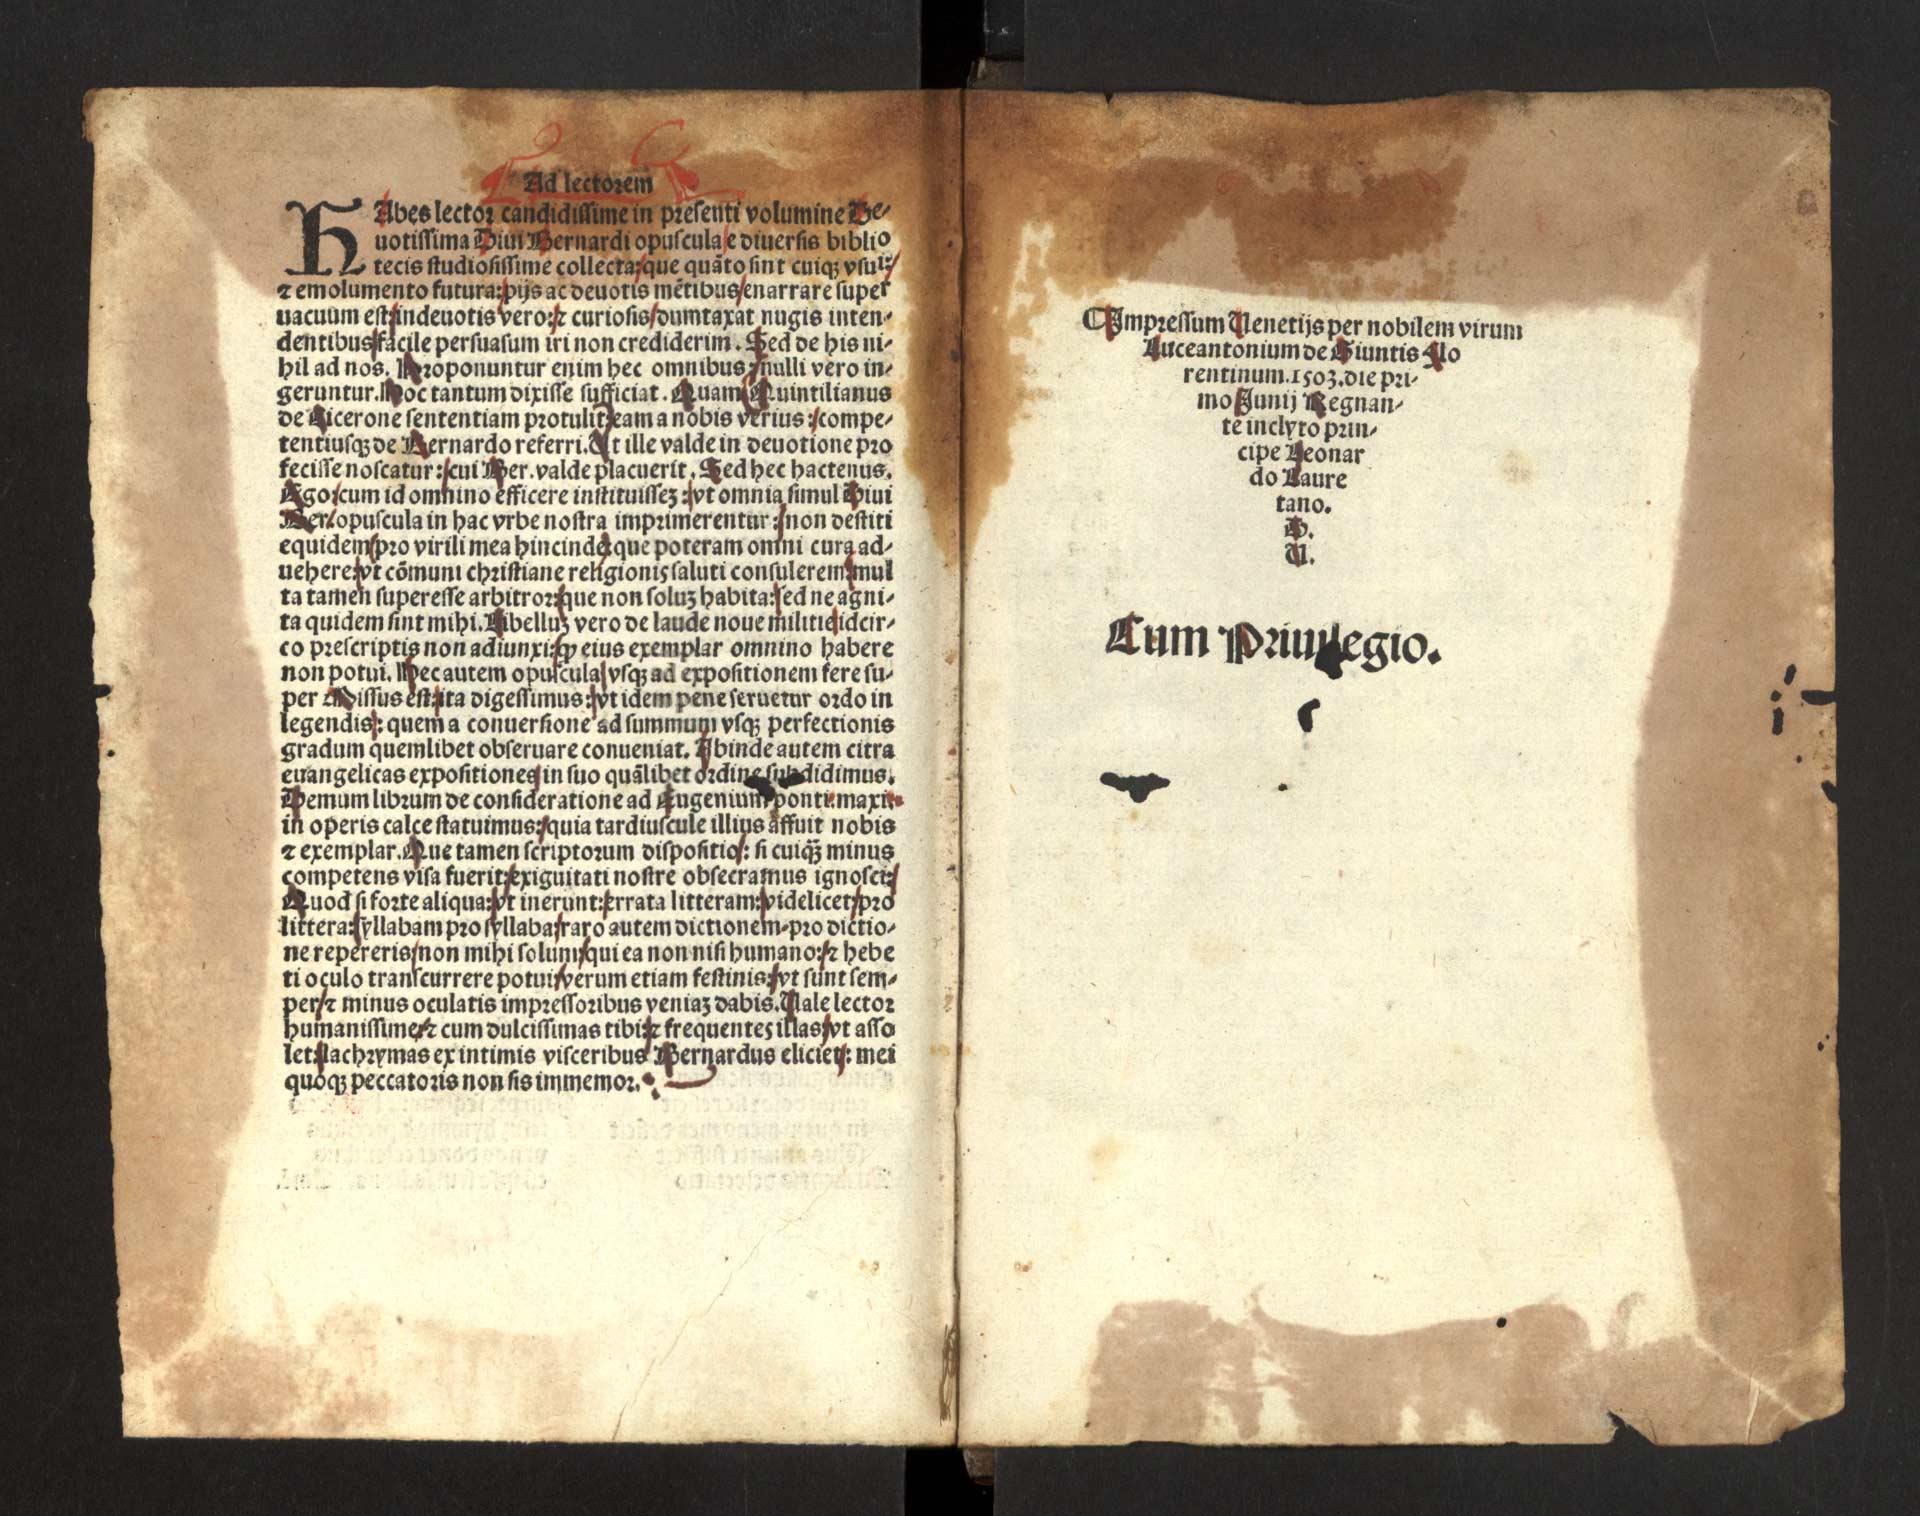 Ad lectorem
HAbes lector candidissime in presenti volumine De-
uotissima Diui Bernardi opuscula e diuersis biblio
tecis studiosissime collecta: que quãto sint cuiqꝫ vsui:
⁊ emolumento futura: pijs ac deuotis mẽtibus enarrare super
uacuum est: indeuotis vero: ⁊ curiosis dumtaxat nugis inten-
dentibus facile persuasum iri non crediderim. Sed de his ni-
hil ad nos. Proponuntur enim hec omnibus: nulli vero in-
geruntur. Hoc tantum dixisse sufficiat. Quam Quintilianus
de Cicerone sententiam protulit: eam a nobis verius: compe-
tentiusqꝫ de Bernardo referri. Ut ille valde in deuotione pro
fecisse noscatur: cui Ber. valde placuerit. Sed hec hactenus.
Ego: cum id omnino efficere instituisseꝫ: vt omnia simul Diui
Ber. opuscula in hac vrbe nostra imprimerentur: non destiti
equidem pro virili mea hincinde: que poteram omni cura ad-
uehere: vt cõmuni christiane religionis saluti consulerem: mul
ta tamen superesse arbitror: que non soluꝫ habita: sed ne agni-
ta quidem sint mihi. Libelluꝫ vero de laude noue militie idcir-
co prescriptis non adiunxi: ꝙ eius exemplar omnino habere
non potui. Hec autem opuscula vsqꝫ ad expositionem fere su-
per Missus est: ita digessimus: vt idem pene seruetur ordo in
legendis: quem a conuersione ad summum vsqꝫ perfectionis
gradum quemlibet obseruare conueniat. Abinde autem citra
euangelicas expositiones in suo quãlibet ordine subdidimus.
Demum librum de consideratione ad Eugenium ponti. maxi.
in operis calce statuimus: quia tardiuscule illius affuit nobis
⁊ exemplar. Que tamen scriptorum dispositio: si cuiqꝫ̃ minus
competens visa fuerit: exiguitati nostre obsecramus ignosci:
Quod si forte aliqua: vt inerunt: errata litteram: videlicet: pro
littera: syllabam pro syllaba: raro autem dictionem pro dictio-
ne repereris non mihi solum: qui ea non nisi humano: ⁊ hebe
ti oculo transcurrere potui: verum etiam festinis: vt sunt sem-
per ⁊ minus oculatis impressoribus veniaꝫ dabis. Uale lector
humanissime: ⁊ cum dulcissimas tibi: ⁊ frequentes illas: vt asso
let: lachrymas ex intimis visceribus Bernardus eliciet: mei
quoqꝫ peccatoris non sis immemor.
¶Impressum Uenetijs per nobilem virum
Luceantonium de Giuntis Flo
rentinum. 1503. die pri-
mo Junij Regnan-
te inclyto prin-
cipe Leonar
do Laure
tano.
D.
U.
Cum Priuilegio.